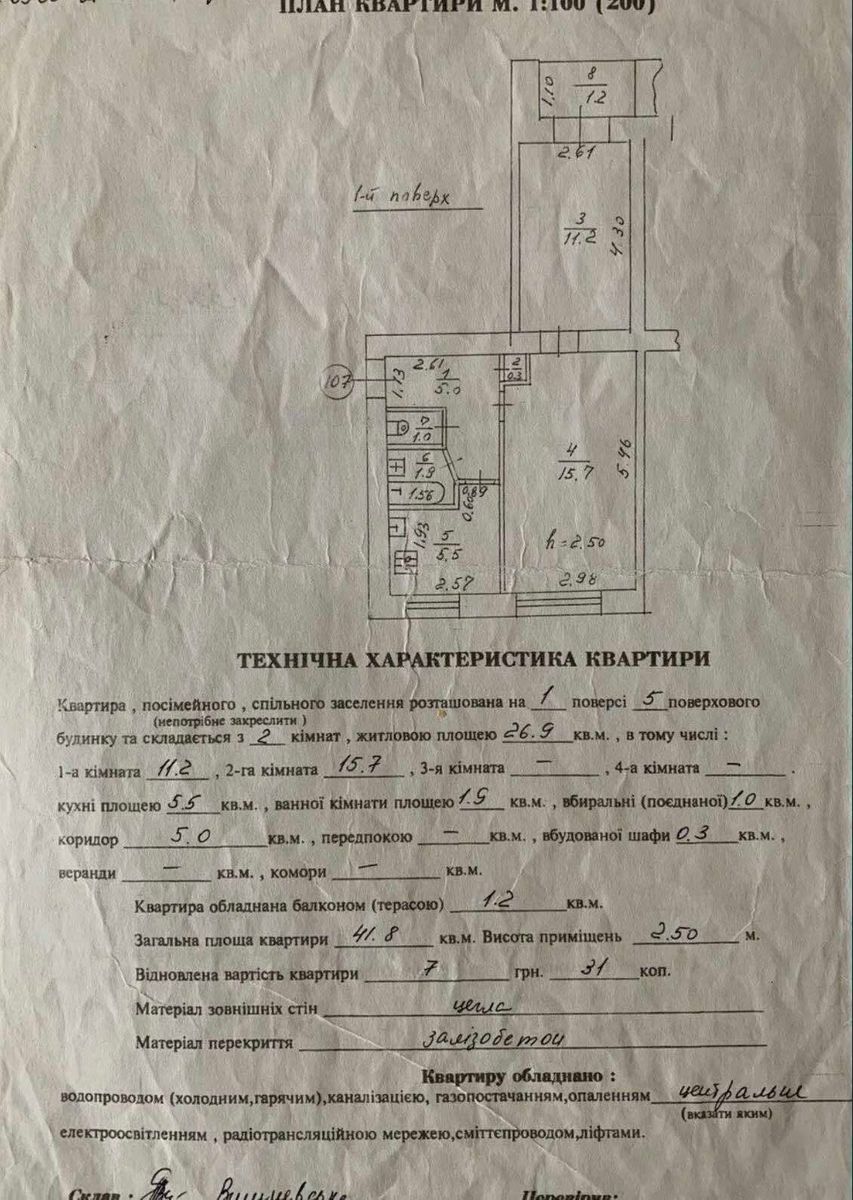 ПЛАН КВАРТИРИ М. 1:100 (200)
8
1.10
1.2
2.61
1-й поверх
3
11.2
4.30
2.61
1
5.0
1.13
2
0.3
107
7
1.0
4
15.7
5.46
6
1.9
1.56
0.89
0.60
1.93
5
5.5
h=2.50
2.57
2.98
ТЕХНІЧНА ХАРАКТЕРИСТИКА КВАРТИРИ
Квартира , посімейного , спільного заселення розташована на 1 поверсі 5 поверхового
(непотрібне закреслити )
будинку та складається з 2 кімнат , житловою площею 26.9 кв.м. , в тому числі :
1-а кімната 11.2 , 2-га кімната 15.7 , 3-я кімната — , 4-а кімната — .
кухні площею 5.5 кв.м. , ванної кімнати площею 1.9 кв.м. , вбиральні (поєднаної) 1.0 кв.м. ,
коридор 5.0 кв.м. , передпокою — кв.м. , вбудованої шафи 0.3 кв.м. ,
веранди — кв.м. , комори — кв.м.
Квартира обладнана балконом (терасою) 1.2 кв.м.
Загальна площа квартири 41.8 кв.м. Висота приміщень 2.50 м.
Відновлена вартість квартири 7 грн. 31 коп.
Матеріал зовнішніх стін цегла
Матеріал перекриття залізобетон
Квартиру обладнано :
водопроводом (холодним,гарячим),каналізацією, газопостачанням,опаленням центральне
(вказати яким)
електроосвітленням , радіотрансляційною мережею,сміттєпроводом,ліфтами.
Склав :
Перевірив: